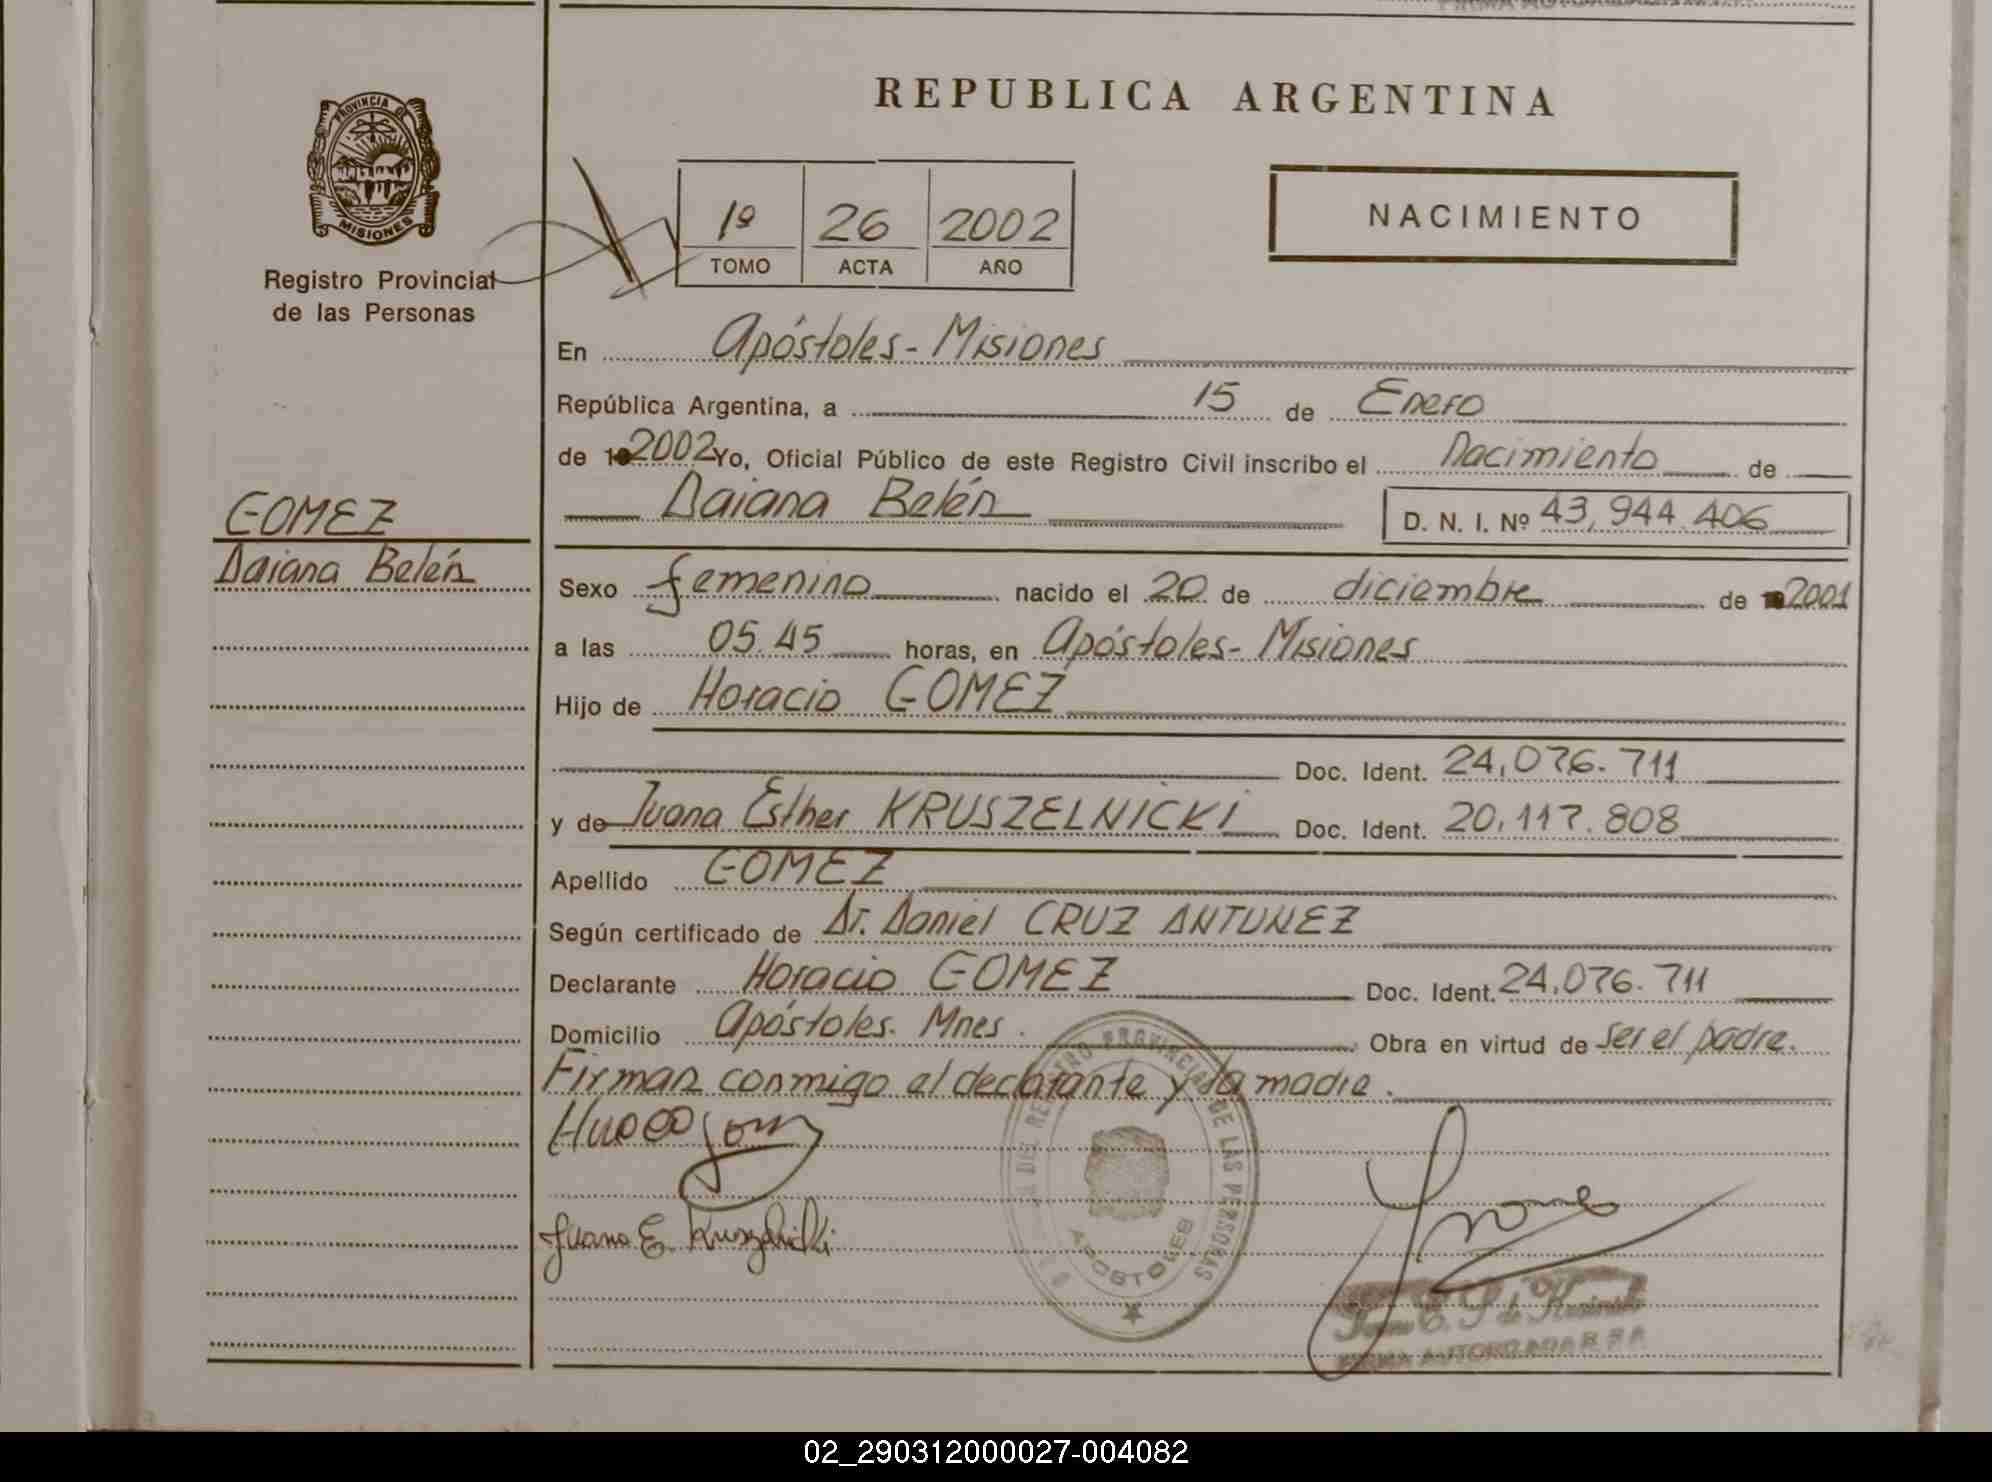 REPUBLICA ARGENTINA
PROVINCIA DE
MISIONES
Registro Provincial
de las Personas
1º 26 2002
TOMO ACTA AÑO
NACIMIENTO
En Apóstoles - Misiones
República Argentina, a 15 de Enero
de 2002 Yo, Oficial Público de este Registro Civil inscribo el Nacimiento de
Daiana Belén D. N. I. Nº 43.944.406
GOMEZ
Daiana Belén
Sexo femenino nacido el 20 de diciembre de 2001
a las 05.45 horas, en Apóstoles - Misiones
Hijo de Horacio GOMEZ
Doc. Ident. 24.076.711
y de Juana Esther KRUSZELNICKI Doc. Ident. 20.117.808
Apellido GOMEZ
Según certificado de Dr. Daniel CRUZ ANTUNEZ
Declarante Horacio GOMEZ Doc. Ident. 24.076.711
Domicilio Apóstoles. Mnes. Obra en virtud de ser el padre.
Firman conmigo el declarante y la madre.
Juana E. Kruszelnicki
DEL REGISTRO PROVINCIAL DE LAS PERSONAS
APOSTOLES
FIRMA AUTORIZADA
02_290312000027-004082